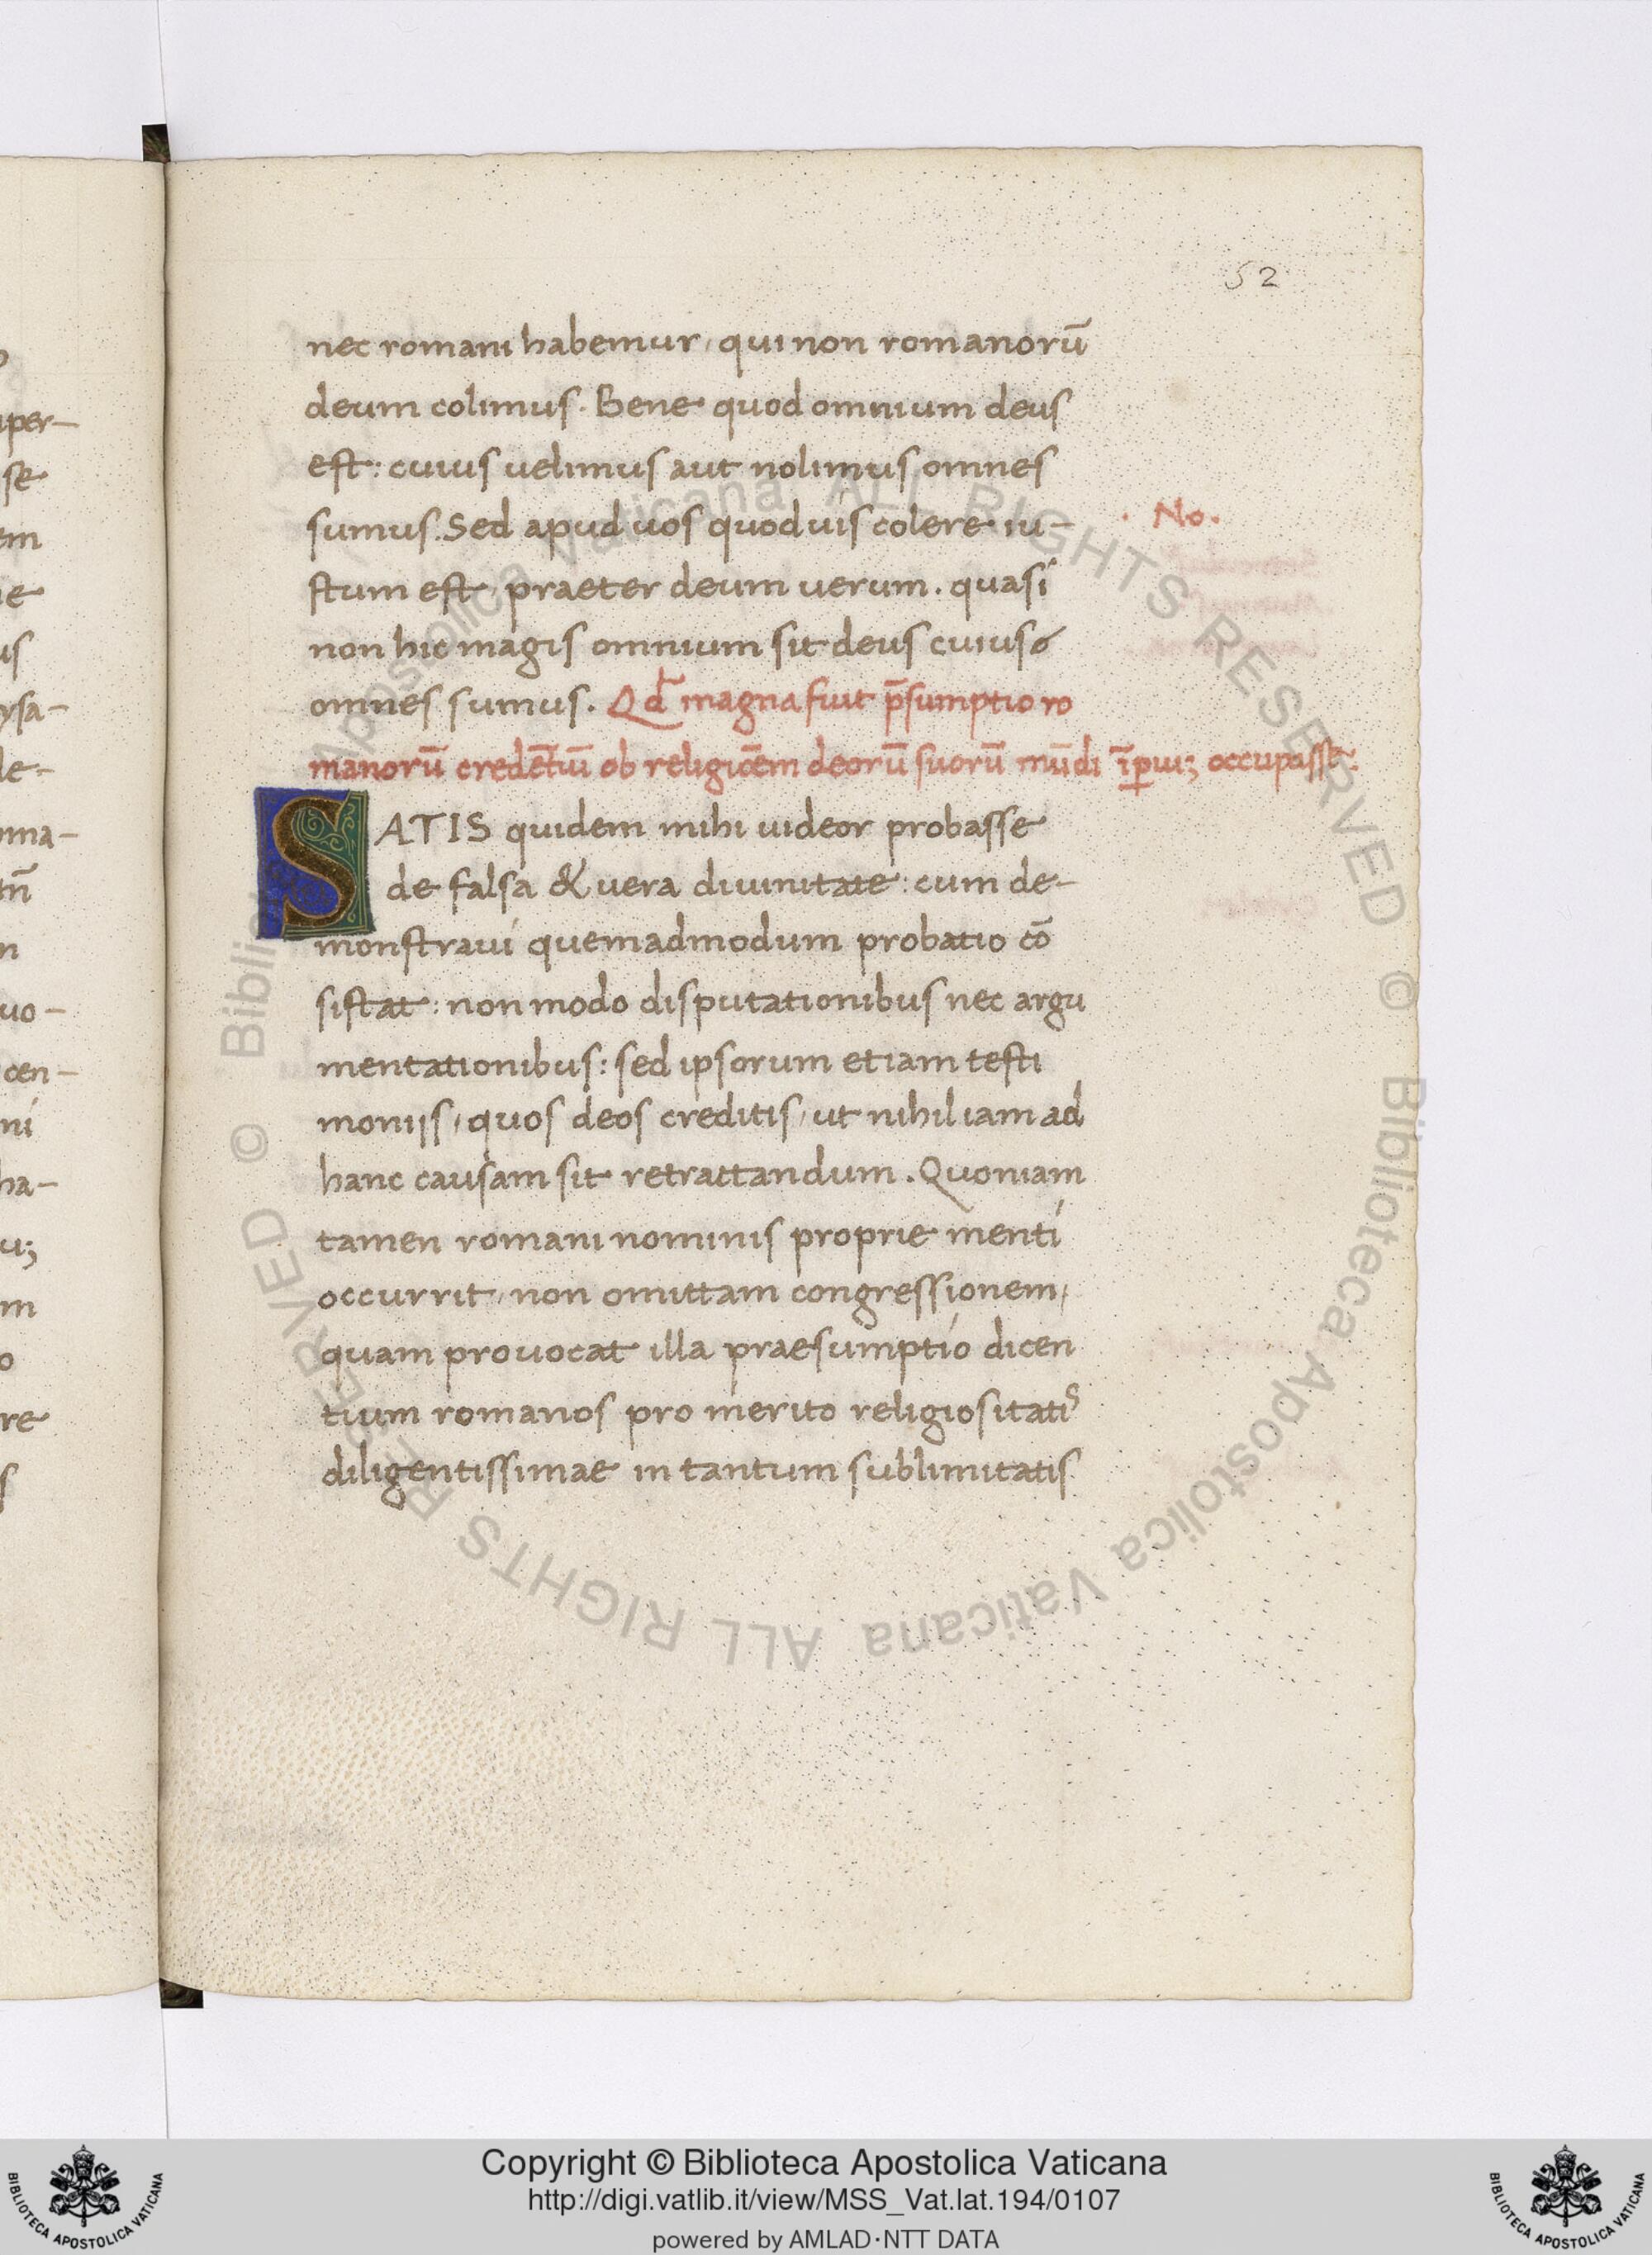 52
nec romani habemur, qui non romanorū
deum colimus. Bene quod omnium deus
est: cuius uelimus aut nolimus omnes
sumus. Sed apud uos quoduis colere iu-
No.
stum est, praeter deum verum. quasi
non hic magis omnium sit deus cuius
omnes sumus. Qd magna fuit p̄sumptio ro
manorū credētiū ob religiōem deorū suorū mūdi īperiuȝ occupasse.
SATIS quidem mihi uideor probasse
de falsa & uera diuinitate: cum de-
monstraui quemadmodum probatio cō
sistat: non modo disputationibus nec argu
mentationibus: sed ipsorum etiam testi
moniis, quos deos creditis, ut nihil iam ad
hanc causam sit retractandum. Quoniam
tamen romani nominis proprie menti
occurrit, non omittam congressionem,
quam prouocat illa praesumptio dicen
tium romanos pro merito religiositatis
diligentissimae in tantum sublimitatis
uper-
se
em
ie
us
ysa-
de-
tn̄
n
uo-
cen-
ni
ha-
uȝ
m
o
re
s
© Biblioteca Apostolica Vaticana ALL RIGHTS RESERVED © Biblioteca Apostolica Vaticana ALL RIGHTS RESERVED
Copyright © Biblioteca Apostolica Vaticana
http://digi.vatlib.it/view/MSS_Vat.lat.194/0107
powered by AMLAD·NTT DATA
BIBLIOTECA APOSTOLICA VATICANA
BIBLIOTECA APOSTOLICA VATICANA